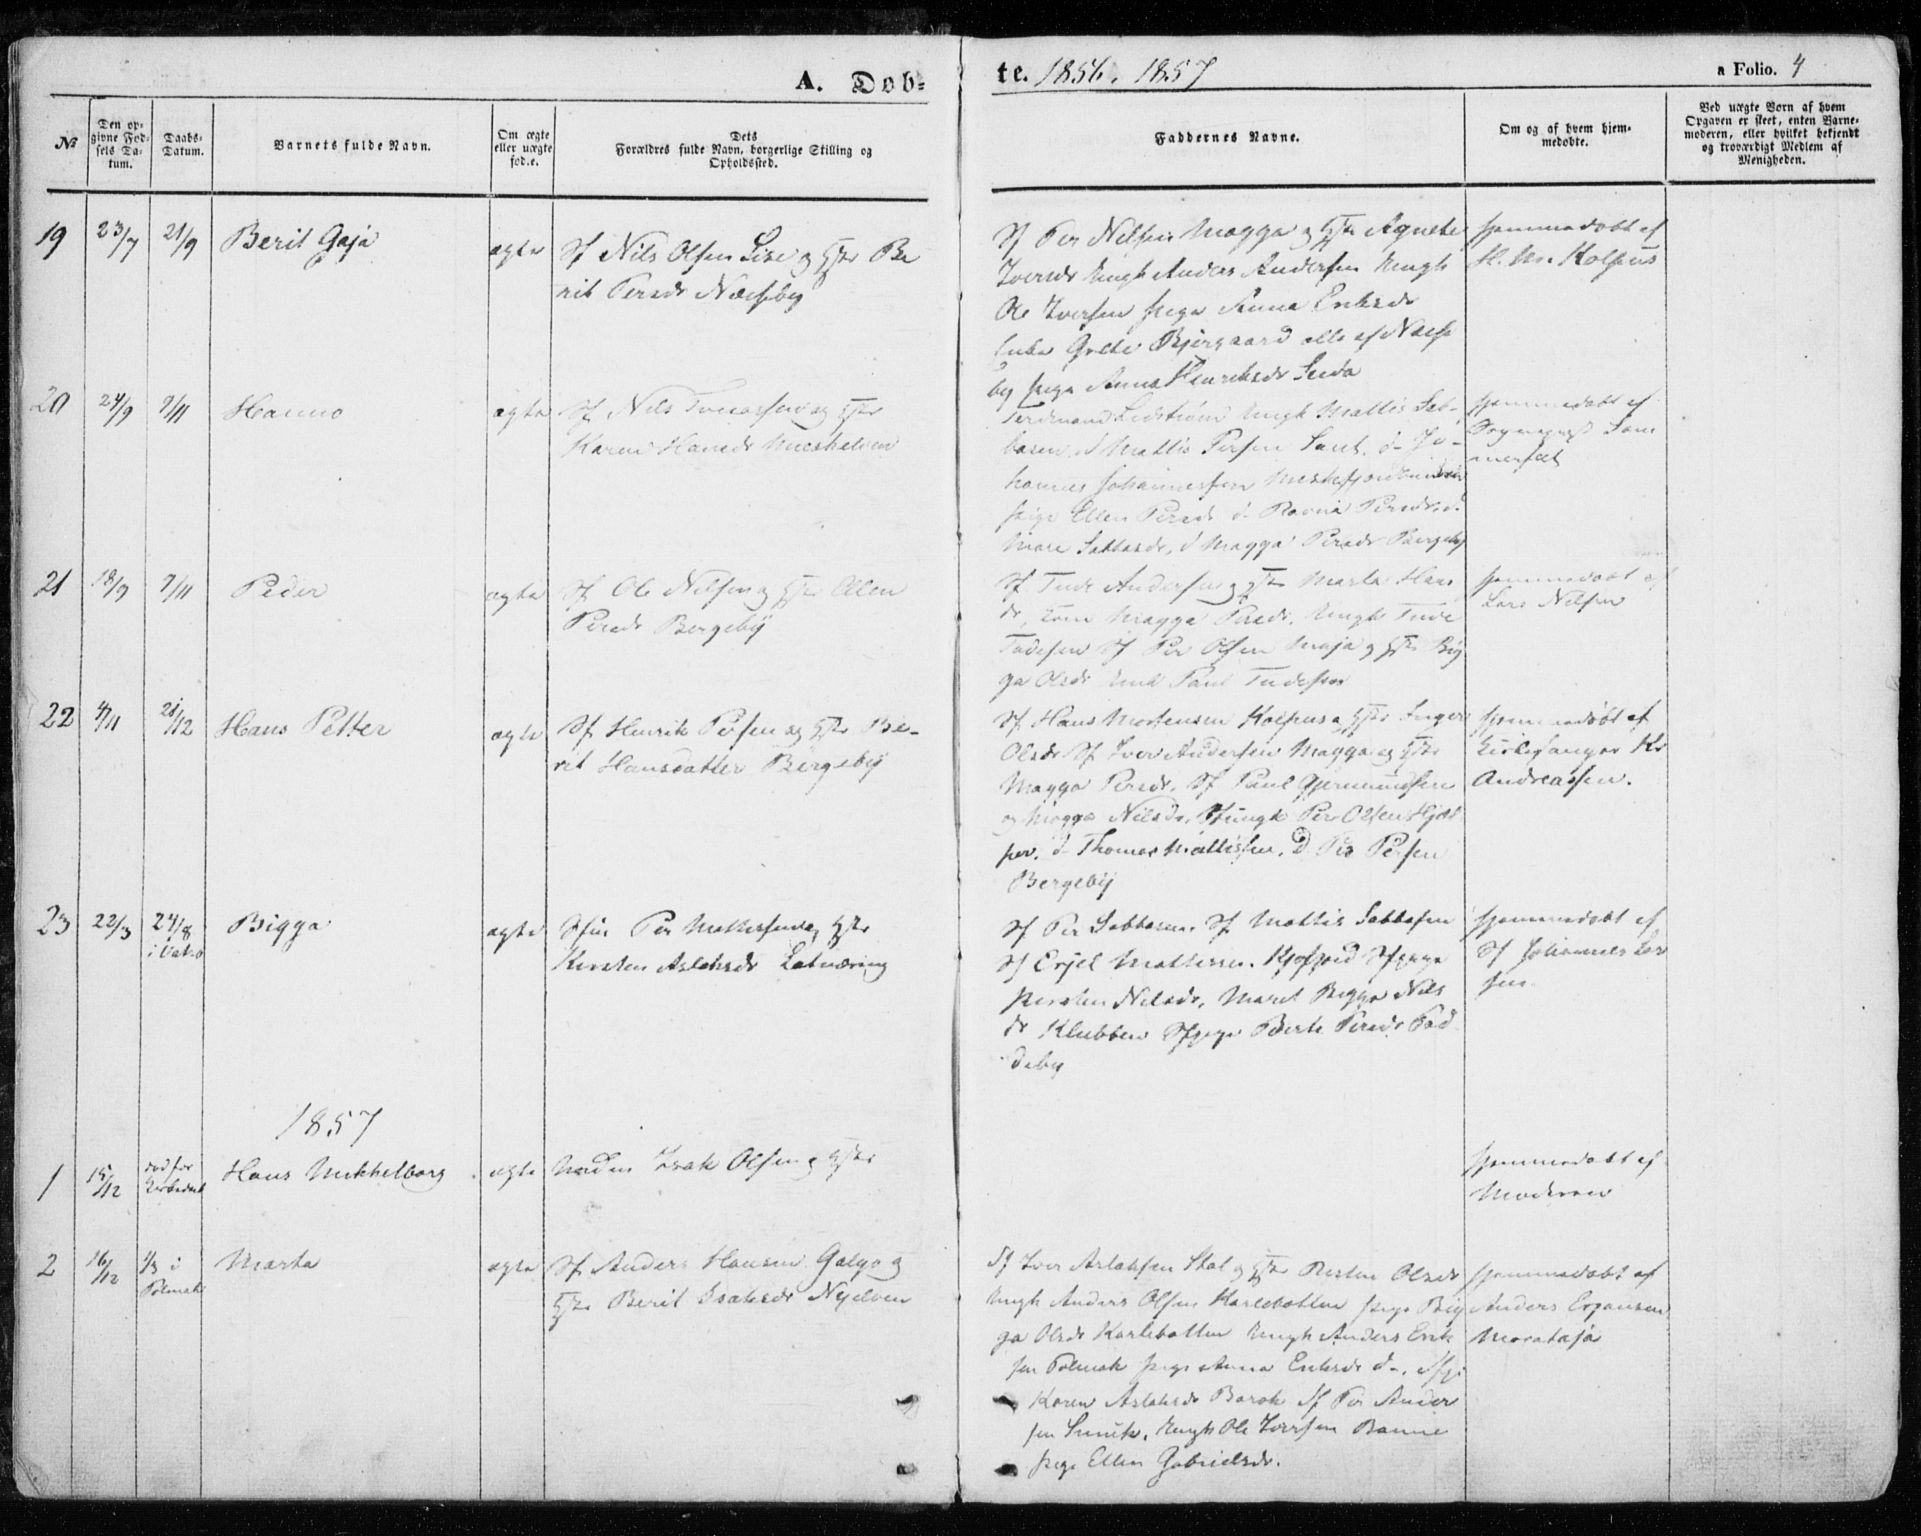 A. Dob-
te. 1856. 1857
a Folio. 4
№
Den op-
givne Fød-
sels Da-
tum.
Daabs-
Datum.
Barnets fulde Navn.
Om ægte
eller uægte
fød.e.
Dets
Forældres fulde Navn, borgerlige Stilling og
Opholdssted.
Faddernes Navne.
Om og af hvem hjem-
medøbte.
Ved uægte Børn af hvem
Opgaven er skeet, enten Barne-
moderen, eller hvilket bekjendt
og troværdigt Medlem af
Menigheden.
19 23/7 21/9 Berit Gaja ægte
Sf Nils Olsen Lise og Hstr Be
rit Persdr Næsseby
Sf Per Nilsen Magga og Hstr Agnete
Iversdr Ungk Anders Andersen Ungk
Ole Iversen Pige Anna Eriksdr
Enke Grete Bjergaard alle af Næsse
by Pige Anna Henriksdr Seida
Hjemmedøbt af
H. M. Kolpus
20 24/9 9/11 Hanno ægte
Sf Nils og Hstr
Karen Hansdr
Ferdinand Ledstrøm Ungk Mattis Sab-
basen, d Mattis Persen Sant. d- Jo-
hannes Johannessen
Pige Ellen Persdr d- Ravna Persdr, d.
Mare Sabbasdr, d Magga Persdr Bergeby
Hjemmedøbt af
Sogneprest Som
merfelt
21 18/9 9/11 Peder ægte
Sf Ole Nilsen og Hstr Ellen
Persdr Bergebÿ
Sf Tude Andersen og Hstr Marta Hans
dr, Magga Persdr. Ungk Tude
Tudesen Sf Per Olsen Maja og Hstr Big
ga Olsdr Paul Tudesen
Hjemmedøbt af
Lars Nilsen
22 4/11 21/12 Hans Petter ægte
Sf Henrik Persen og Hstr Be-
rit Hansdatter Bergebÿ
Sf Hans Mortensen Kolpus og Hstr Inger
Olsdr Sf Iver Andersen Magga og Hstr
Magga Persdr. Sf Paul Gjermundsen
og Magga Nilsdr. Ungk Per Olsen Hjæl
per. d- Thomas Mattissen. d Per Persen
Bergebÿ
Hjemmedøbt af
Kirkesanger Kr
Andreassen.
23 22/3 24/8
i Vadsø
Bigga ægte
Per Mattissen og Hstr
Kirsten Aslaksdr Latnæring
Sf Per Sabbasen. Sf Mattis Sabbasen
Sf Erjel Mattissen. Kjøfjord Sfpige
Kirsten Nilsdr, Marit Bigga Nils
dr Klubben Sfpige Berte Persdr Pad
deby
Hjemmedøbt af
Sf Johannes Lar
sen
1857
1 15/12 død før
Hans Mikkelborg ægte Isak Olsen og Hstr
Hjemmedøbt af
Moderen
2 16/12 4/3 i
Polmak
Marta ægte
Sf Anders Hansen Galgo og
Hstr Berit Isaksdr Nyelven
Sf Iver Aslaksen Stal og Hstr Kirsten Olsdr
Ungk Anders Olsen Karlebotten Pige Big
ga Olsdr Karlebotten Ungk Anders Erik
sen Polmak Pige Anna Eriksdr d-.
Karen Aslaksdr Sf Per Ander
sen Ungk Ole Iversen
Pige Ellen Gabrielsdr.
Hjemmedøbt af
Anders Erjansen
Moratoja